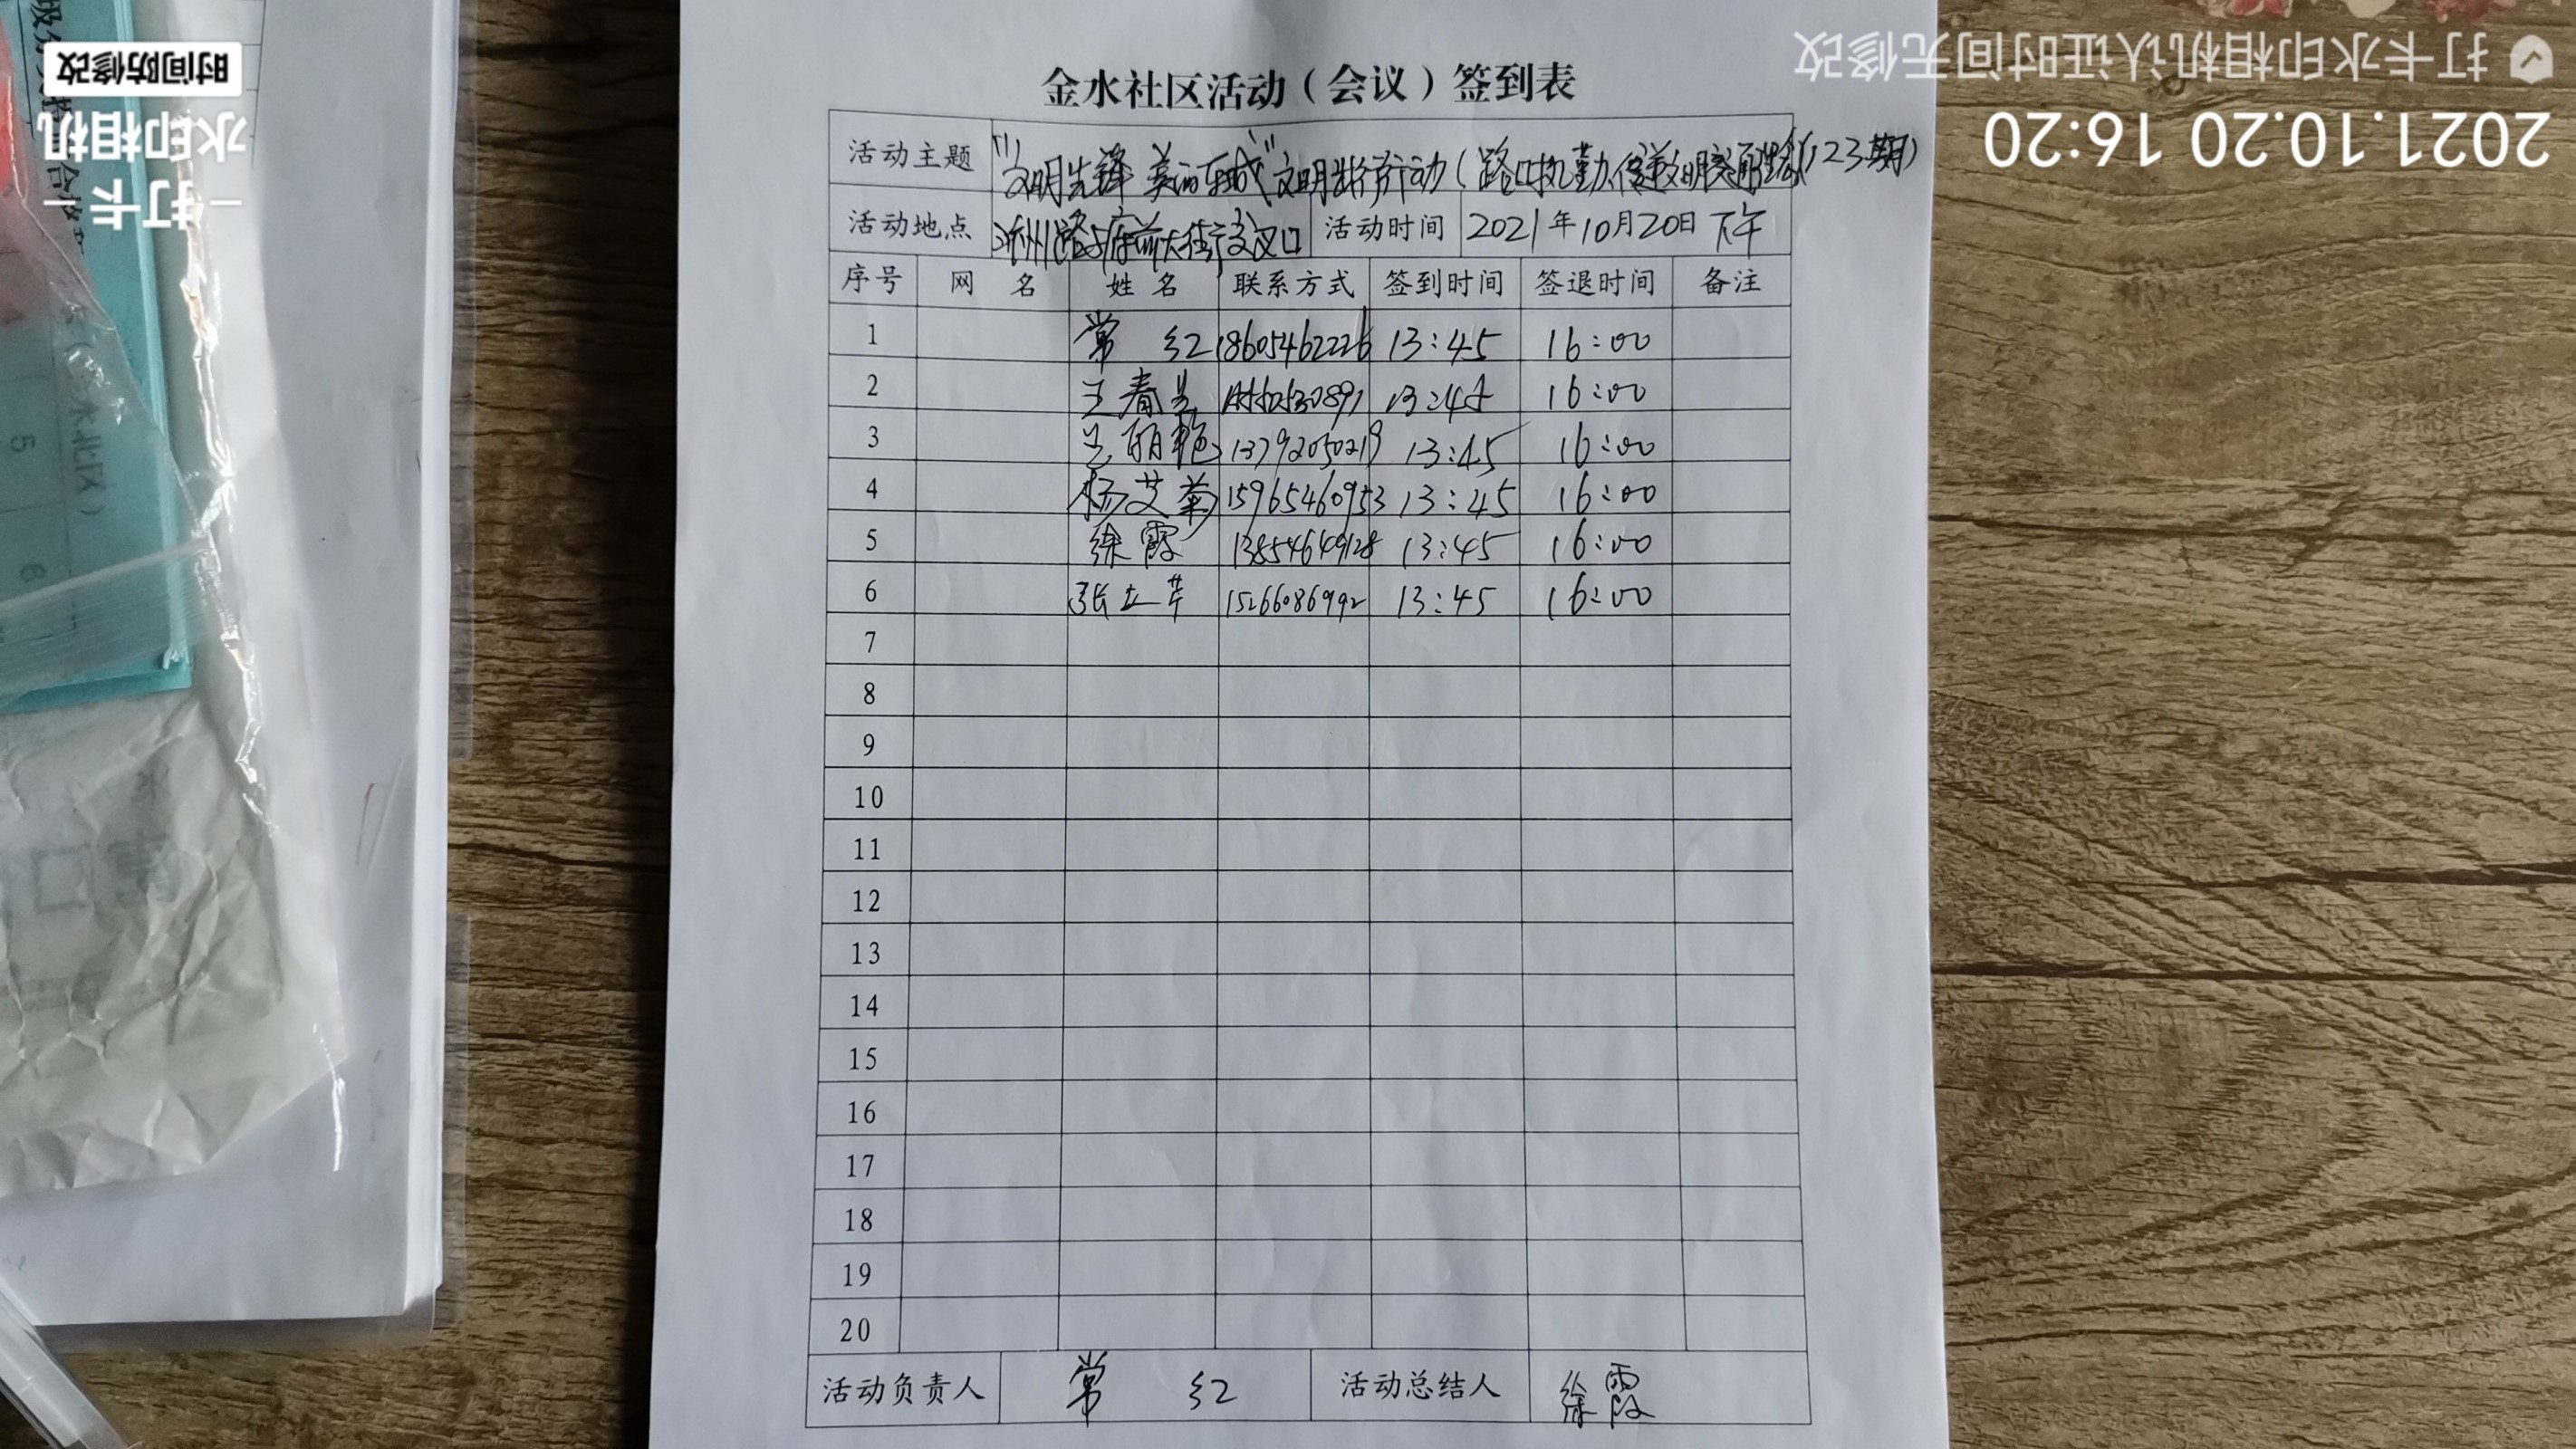 金水社区活动（会议）签到表
活动主题 "文明先锋 美丽东城"文明 行动（路口执勤 文明交通 123期）
活动地点 路与府前大街交叉口 活动时间 2021年10月20日下午
序号 网 名 姓 名 联系方式 签到时间 签退时间 备注
1 常 红 18605462226 13:45 16:00
2 王春 13:45 16:00
3 丽艳 13792050219 13:45 16:00
4 杨艾菊 15965460953 13:45 16:00
5 徐霞 13854649128 13:45 16:00
6 张立芹 15266086992 13:45 16:00
7
8
9
10
11
12
13
14
15
16
17
18
19
20
活动负责人 常 红 活动总结人 徐霞
打卡水印相机认证时间无修改
2021.10.20 16:20
打卡
水印相机
时间防修改
5
6